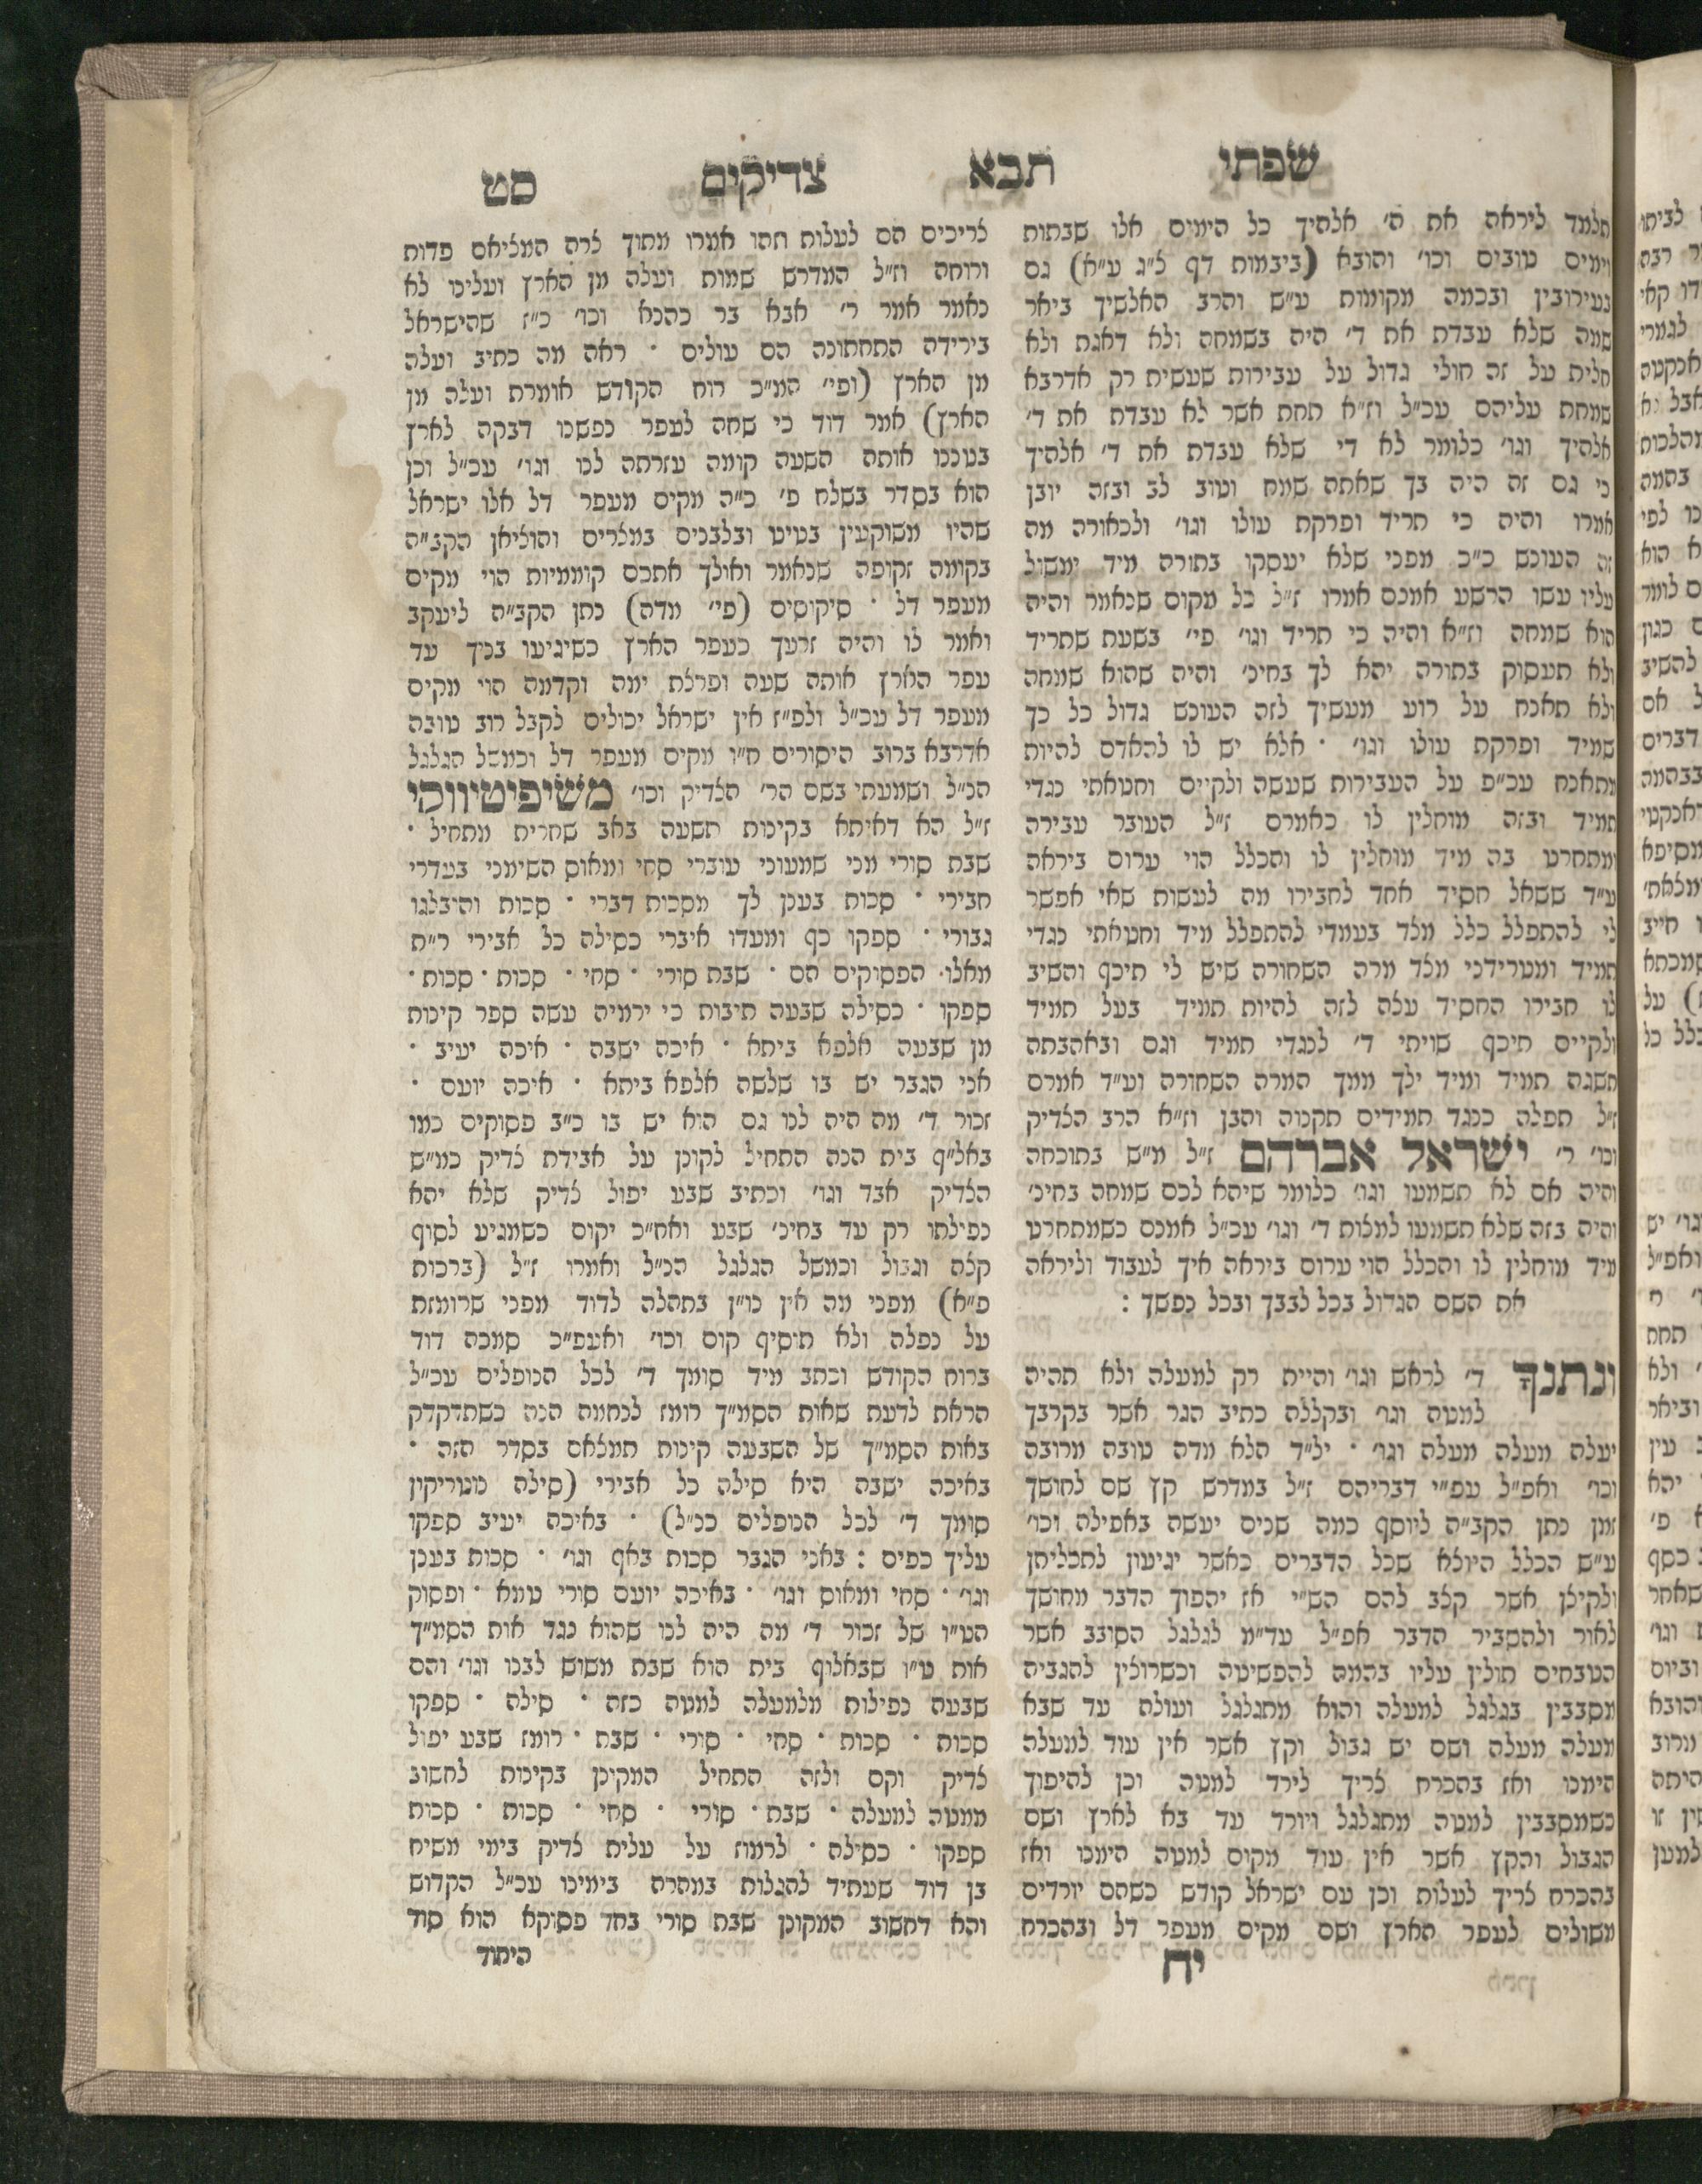 שפתי תבא צדיקים סט
תלמד ליראה את ה' אלהיך כל הימים אלו שבתות
וימים טובים וכו' והובא (ביבמות דף צ"ג ע"א) גם
בעירובין ובכמה מקומות ע"ש והרב האלשיך ביאר
שמה שלא עבדת את ד' היה בשמחה ולא דאגת ולא
חלית על זה חולי גדול על עבירות שעשית רק אדרבא
שמחת עליהם עכ"ל וז"א תחת אשר לא עבדת את ד'
אלהיך וגו' כלומר לא די שלא עבדת את ד' אלהיך
כי גם זה היה בך שאתה שמח וטוב לב ובזה יובן
אמרו והיה כי תריד ופרקת עולו וגו' ולכאורה מה
זה העונש כ"כ מפני שלא יעסקו בתורה מיד ימשול
עליו עשו הרשע אמנם אמרו ז"ל כל מקום שנאמר והיה
הוא שמחה וז"א והיה כי תריד וגו' פי' בשעת שתריד
ולא תעסוק בתורה יהא לך בחינ' והיה שהוא שמחה
ולא תאנח על רוע מעשיך לזה העונש גדול כל כך
שמיד ופרקת עולו וגו' · אלא יש לו להאדם להיות
מתאנח עכ"פ על העבירות שעשה ולקיים וחטאתי נגדי
תמיד ובזה מוחלין לו כאמרם ז"ל העובר עבירה
ומתחרט בה מיד מוחלין לו והכלל הוי ערום ביראה
ע"ד ששאל חסיד אחד לחבירו מה לעשות שאי אפשר
לי להתפלל כלל מצד בעמדי להתפלל מיד וחטאתי נגדי
תמיד ומטרידני מצד מרה השחורה שיש לי תיכף והשיב
לו חבירו החסיד עצה לזה להיות תמיד בעל תמיד
ולקיים תיכף שויתי ד' לנגדי תמיד וגם ובאהבתה
תשגה תמיד ומיד ילך ממך המרה השחורה וע"ד אמרם
ז"ל תפלה כנגד תמידים תקנוה והבן וז"א הרב הצדיק
וכו' ר' ישראל אברהם ז"ל מ"ש בתוכחה
והיה אם לא תשמעו וגו' כלומר שיהא לכם שמחה בחינ'
והיה בזה שלא תשמעו למצות ד' וגו' עכ"ל אמנם כשמתחרט
מיד מוחלין לו והכלל הוי ערום ביראה איך לעבוד וליראה
את השם הגדול בכל לבבך ובכל נפשך :
ונתנך ד' לראש וגו' והיית רק למעלה ולא תהיה
למטה וגו' ובקללה כתיב הגר אשר בקרבך
יעלה מעלה מעלה וגו' · יל"ד הלא מדה טובה מרובה
וכו' ואפ"ל עפ"י דבריהם ז"ל במדרש קץ שם לחושך
זמן נתן הקב"ה ליוסף כמה שנים יעשה באפילה וכו'
ע"ש הכלל היוצא שכל הדברים כאשר יגיעון לתכליתן
ולקיצן אשר קצב להם הש"י אז יהפוך הדבר מחושך
לאור ולהסביר הדבר אפ"ל עד"מ לגלגל הסובב אשר
הטבחים תולין עליו בהמה להפשיטה וכשרוצין להגביה
מסבבין בגלגל למעלה והוא מתגלגל ועולה עד שבא
מעלה מעלה ושם יש גבול וקץ אשר אין עוד למעלה
הימנו ואז בהכרח צריך לירד למטה וכן להיפוך
כשמסבבין למטה מתגלגל ויורד עד בא לארץ ושם
הגבול והקץ אשר אין עוד מקום למטה הימנו ואז
בהכרח צריך לעלות וכן עם ישראל קודש כשהם יורדים
משולים לעפר הארץ ושם מקים מעפר דל ובהכרח
יח
צריכים הם לעלות וזהו אמרו מתוך צרה המציאם פדות
ורוחה וז"ל המדרש שמות ועלה מן הארץ ועלינו לא
נאמר אמר ר' אבא בר כהנא וכו' כ"ז שהישראל
בירידה התחתונה הם עולים · ראה מה כתיב ועלה
מן הארץ (ופי' המ"כ רוח הקודש אומרת ועלה מן
הארץ) אמר דוד כי שחה לעפר נפשנו דבקה לארץ
בטננו אותה השעה קומה עזרתה לנו וגו' עכ"ל וכן
הוא בסדר בשלח פ' כ"ה מקים מעפר דל אלו ישראל
שהיו משוקעין בטיט ובלבנים במצרים והוציאן הקב"ה
בקומה זקופה שנאמר ואולך אתכם קוממיות הוי מקים
מעפר דל · סיקוסים (פי' מדה) נתן הקב"ה ליעקב
ואמר לו והיה זרעך כעפר הארץ כשיגיעו בניך עד
עפר הארץ אותה שעה ופרצת ימה וקדמה הוי מקים
מעפר דל עכ"ל ולפ"ז אין ישראל יכולים לקבל רוב טובה
אדרבא ברוב היסורים ח"ו מקים מעפר דל וכמשל הגלגל
הנ"ל ושמעתי בשם הר' הצדיק וכו' משיפיטיווקי
ז"ל הא דאיתא בקינות תשעה באב שחרית מתחיל ·
שבת סורי מני שמעוני עוברי סחי ומאוס השימני בעדרי
חבירי · סכות בענן לך מסכות דברי · סכות והיבלגו
גבורי · ספקו כף ומעדו איברי כסילה כל אבירי ר"ת
מאלו הפסוקים הם · שבת סורי · סחי · סכות · סכות ·
ספקו · כסילה שבעה תיבות כי ירמיה עשה ספר קינות
מן שבעה אלפא ביתא · איכה ישבה · איכה יעיב ·
אני הגבר יש בו שלשה אלפא ביתא · איכה יועם ·
זכור ד' מה היה לנו גם הוא יש בו כ"ב פסוקים כמו
באל"ף בית הנה התחיל לקונן על אבידת צדיק כמ"ש
הצדיק אבד וגו' וכתיב שבע יפול צדיק שלא יהא
נפילתו רק עד בחינ' שבע ואח"כ יקום כשמגיע לסוף
קצה וגבול וכמשל הגלגל הנ"ל ואמרו ז"ל (ברכות
פ"א) מפני מה אין נו"ן בתהלה לדוד מפני שרומזת
על נפלה ולא תוסיף קום וכו' ואעפ"כ סמכה דוד
ברוח הקודש וכתב מיד סומך ד' לכל הנופלים עכ"ל
הראת לדעת שאות הסמ"ך רומז לנחמה הנה כשתדקדק
באות הסמ"ך של השבעה קינות תמצאם בסדר הזה ·
באיכה ישבה היא סילה כל אבירי (סילה נוטריקון
סומך ד' לכל הנופלים כנ"ל) · באיכה יעיב ספקו
עליך כפים : באני הגבר סכות באף וגו' · סכות בענן
וגו' · סחי ומאוס וגו' · באיכה יועם סורי טמא · ופסוק
הט"ו של זכור ד' מה היה לנו שהוא נגד אות הסמ"ך
אות ט"ו שבאלוף בית הוא שבת משוש לבנו וגו' והם
שבעה נפילות מלמעלה למטה כזה · סילה · ספקו
סכות · סכות · סחי · סורי · שבת · רומז שבע יפול
צדיק וקם ולזה התחיל המקונן בקינות לחשוב
ממטה למעלה · שבת · סורי · סחי · סכות · סכות
ספקו · כסילה · לרמוז על עלית צדיק בימי משיח
בן דוד שעתיד להגלות במהרה בימינו עכ"ל הקדוש
והא דחשוב המקונן שבת סורי בחד פסוקא הוא סוד
היחוד